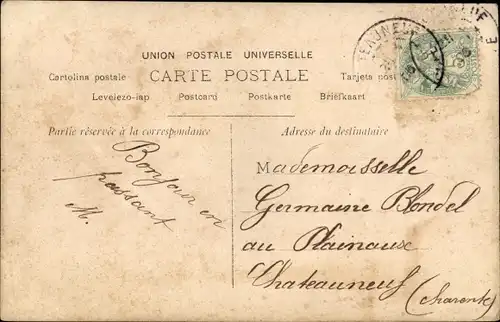 UNION POSTALE UNIVERSELLE
Cartolina postale CARTE POSTALE Tarjeta postal
Levelezo-lap Postcard Postkarte Briefkaart
Partie réservée à la correspondance
Adresse du destinataire
Bonjour en
passant
M.
Mademoisselle
Germaine Blondel
au Plainaux
Chateauneuf
(Charente)